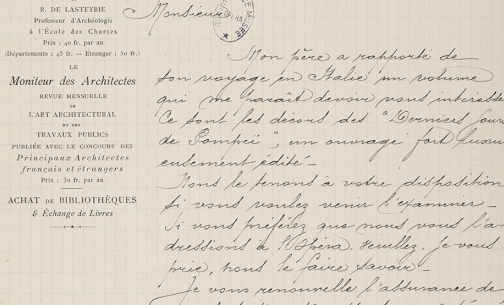 R. DE LASTEYRIE
Professeur d'Archéologie
à l'École des Chartes
Prix : 40 fr. par an
(Départements : 45 fr. — Etranger : 50 fr.)
LE
Moniteur des Architectes
REVUE MENSUELLE
DE
L'ART ARCHITECTURAL
ET DES
TRAVAUX PUBLICS
PUBLIÉE AVEC LE CONCOURS DES
Principaux Architectes
français et étrangers
Prix : 30 fr. par an
ACHAT DE BIBLIOTHÈQUES
& Échange de Livres
Monsieur
Mon père a rapporté de
son voyage en Italie un volume
qui me paraît devoir vous intéresser
Ce sont les décors des "Derniers jours
de Pompeï", un ouvrage fort luxu
eusement édité —
Nous le tenons à votre disposition
si vous voulez venir l'examiner —
Si vous préférez que nous vous l'a
dressions à l'Opéra, veuillez, je vous
prie, nous le faire savoir —
Je vous renouvelle l'assurance de